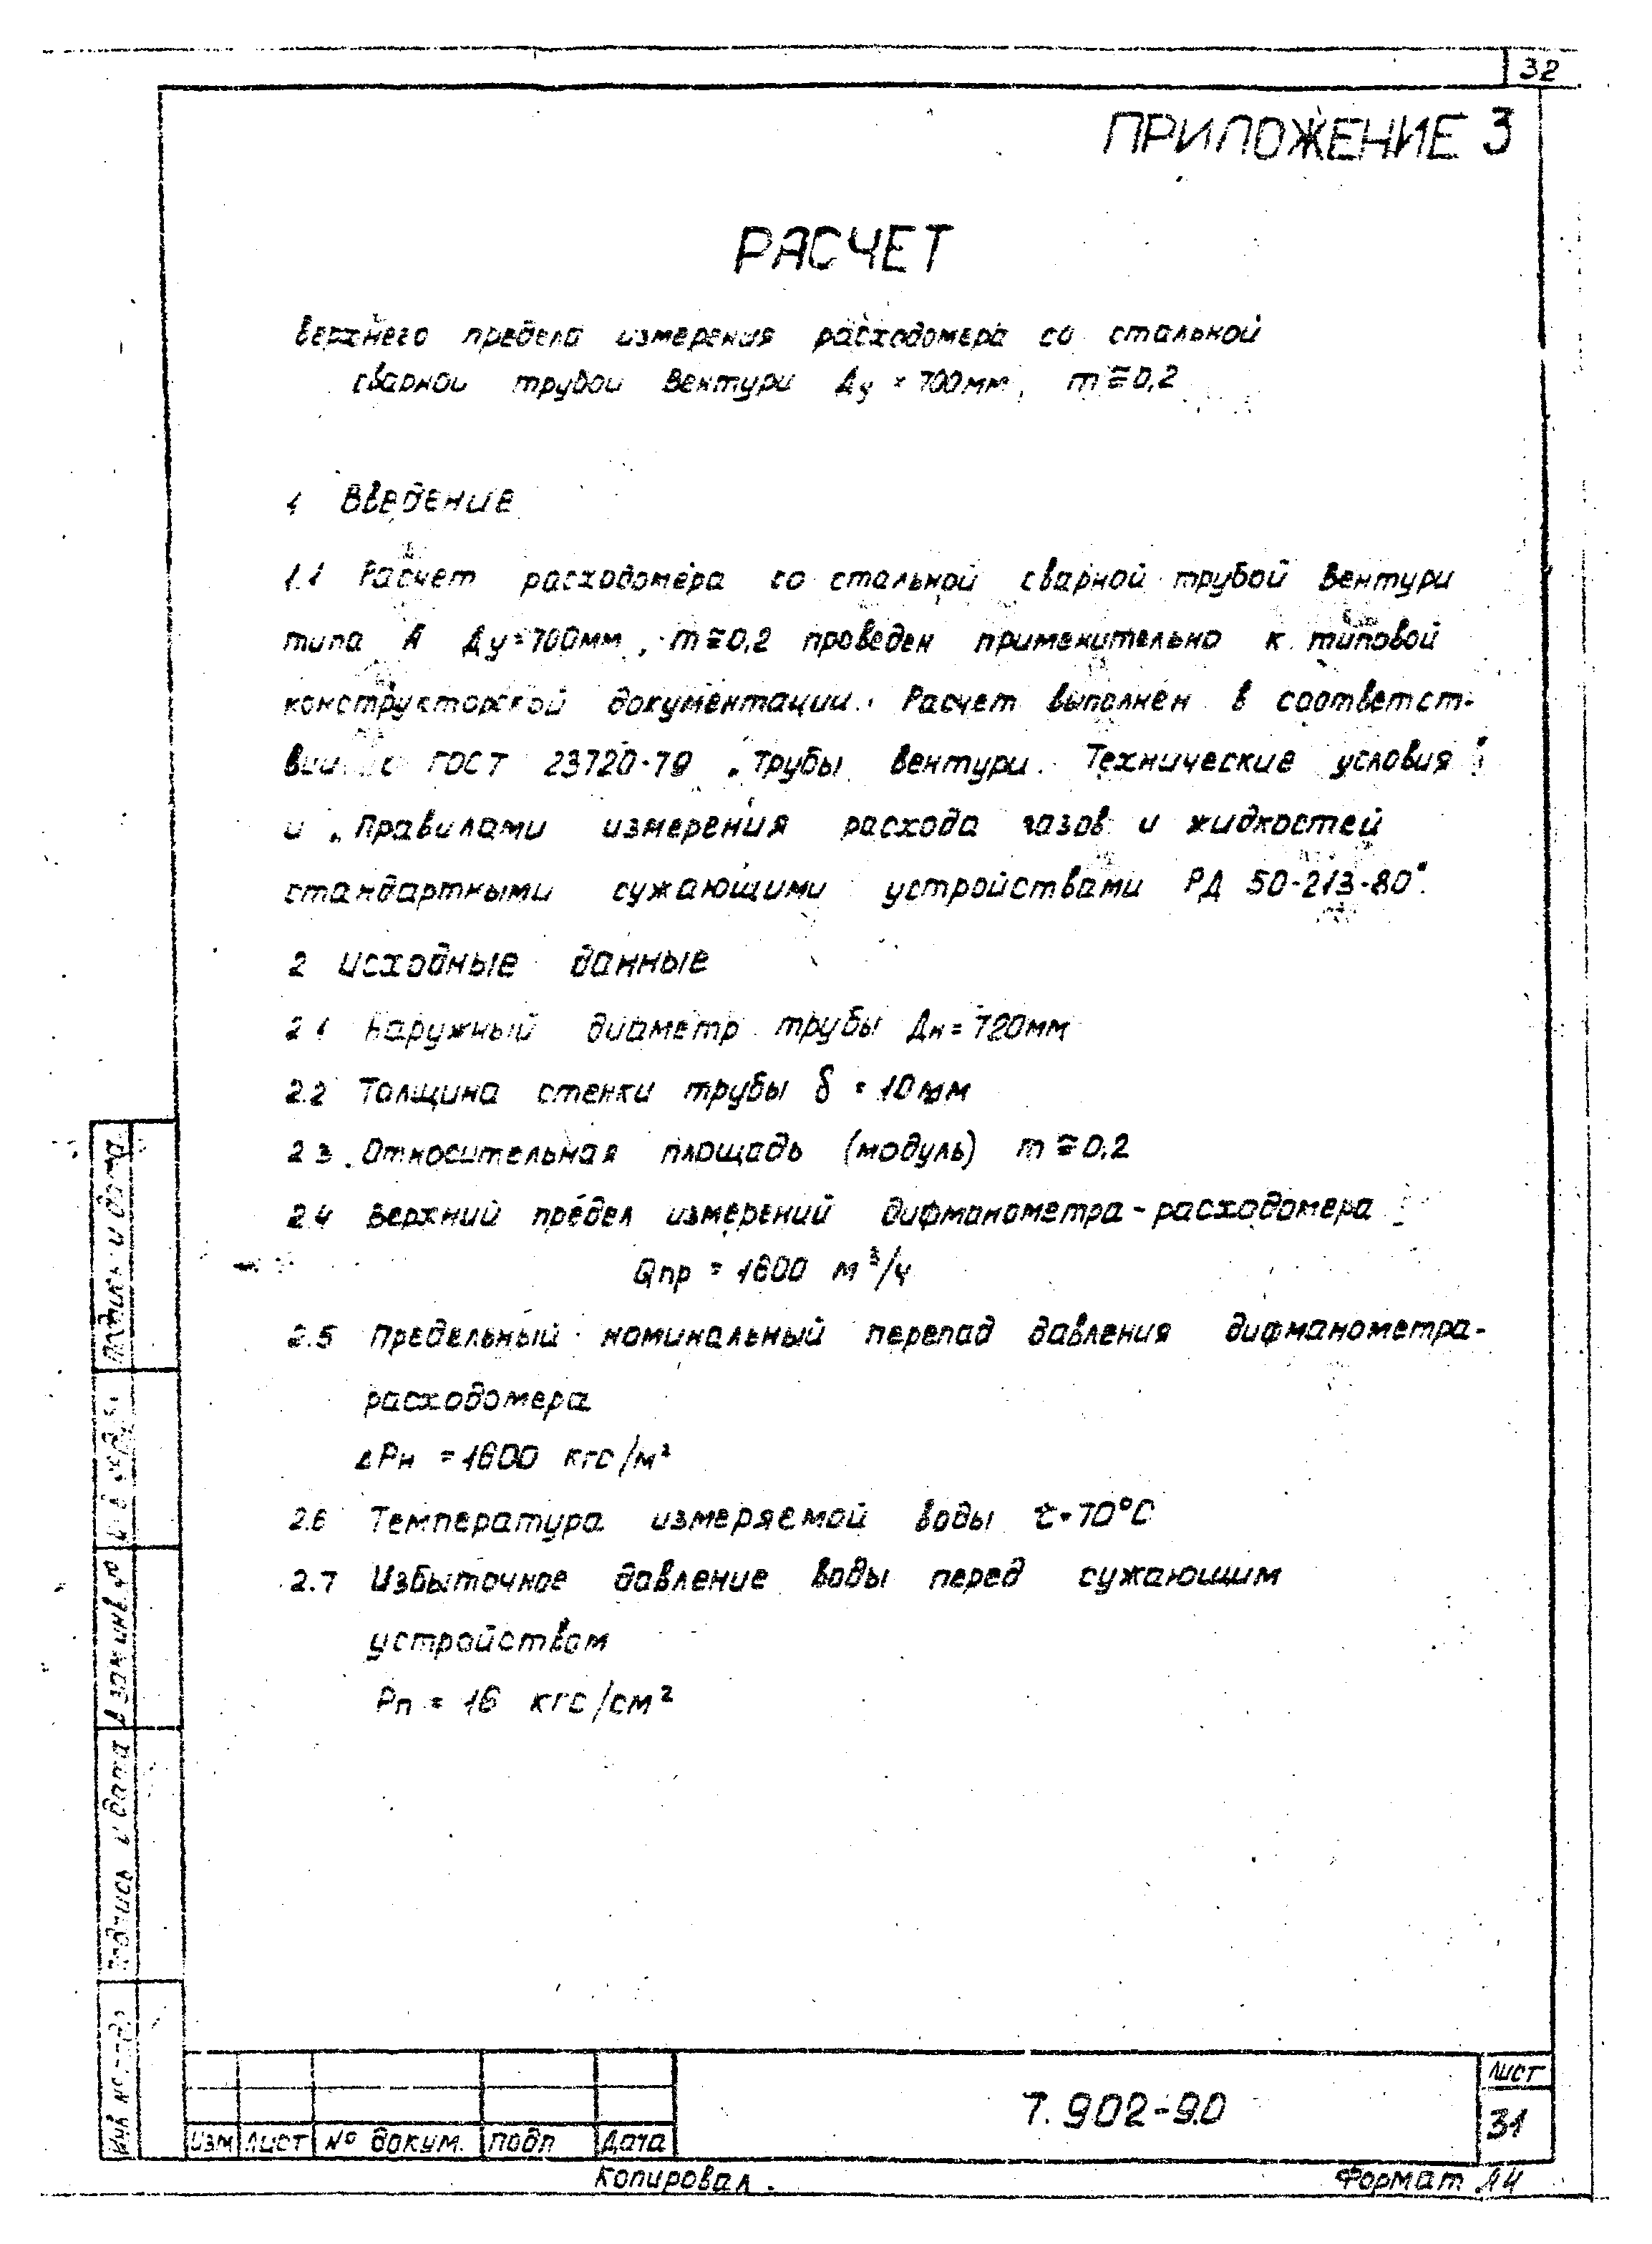 32
ПРИЛОЖЕНИЕ 3
РАСЧЕТ
верхнего предела измерения расходомера со стальной
сварной трубой Вентури Ду = 700мм, m ≅ 0,2
1 Введение
1.1 Расчет расходомера со стальной сварной трубой Вентури
типа А Ду = 700мм, m ≅ 0,2 проведен применительно к типовой
конструкторской документации. Расчет выполнен в соответст-
вии с ГОСТ 23720-79 „Трубы Вентури. Технические условия"
и „Правилами измерения расхода газов и жидкостей
стандартными сужающими устройствами РД 50-213-80".
2 Исходные данные
2.1 Наружный диаметр трубы Дн = 720мм
2.2 Толщина стенки трубы δ = 10мм
2.3 Относительная площадь (модуль) m ≅ 0,2
2.4 Верхний предел измерений дифманометра-расходомера
Qпр = 1600 м³/ч
2.5 Предельный номинальный перепад давления дифманометра-
расходомера
ΔРн = 1600 кгс/м²
2.6 Температура измеряемой воды t = 70°С
2.7 Избыточное давление воды перед сужающим
устройством
Рп = 16 кгс/см²
Подпись и дата
Взам инв. №
Подпись и дата
Инв №
7.902-9.0
Лист
31
Изм Лист № докум. Подп Дата
Копировал
Формат А4